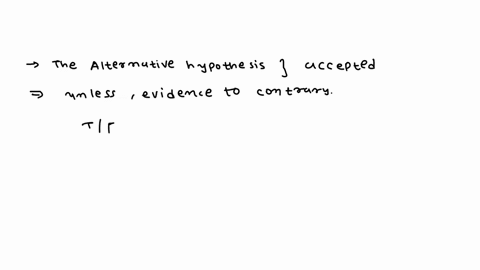 → The Alternative hypothesis } accepted
⇒ unless, evidence to contrary.
T/F